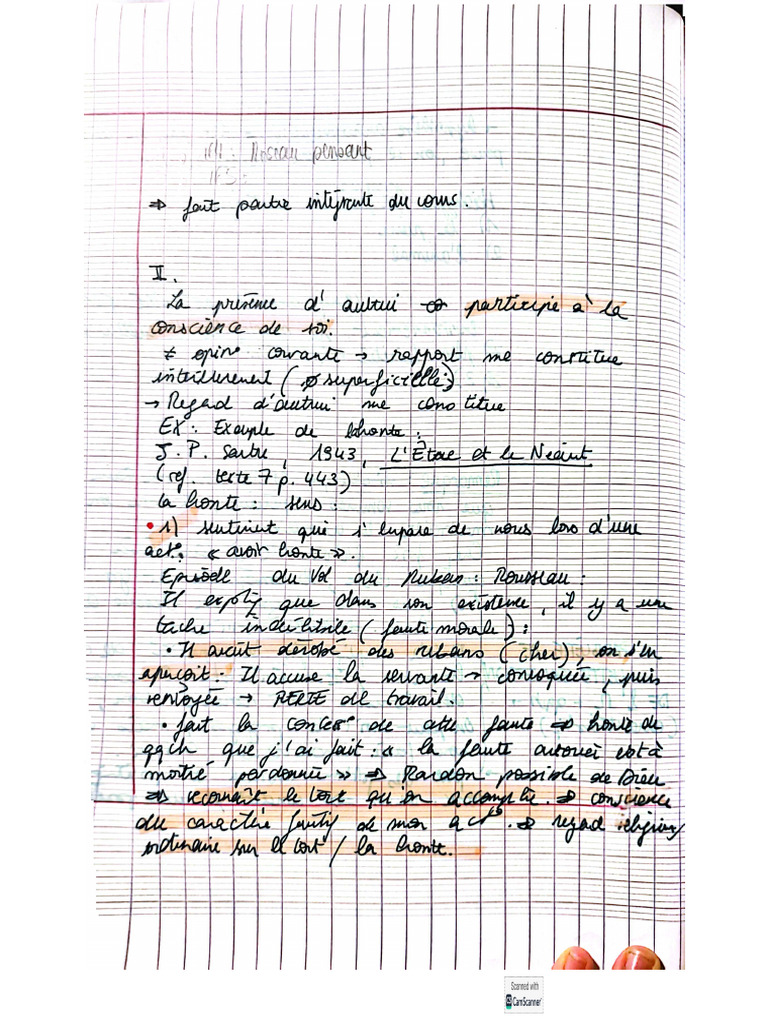 Roseau pensant
⇒ fait partie intégrante du cours.
II.
La présence d'autrui participe à la
conscience de soi.
≠ opin° courante → rapport me constitue
intérieurement (ø superficielle)
→ Regard d'autrui me constitue
EX : Exemple de la honte :
J. P. Sartre, 1943, L'Être et le Néant
(ref. texte 7 p. 443)
La honte : sens :
• 1) sentiment qui s'empare de nous lors d'une
act° : « avoir honte ».
Episode du Vol du Ruban : Rousseau :
Il expliq que dans son existence, il y a une
tache indélébile (faute morale) :
• Il avait dérobé des rubans (cher), on s'en
aperçoit : Il accuse la servante → convoquée, puis
renvoyée → PERTE de travail.
• fait la confess° de cette faute ⇒ honte de
qqch que j'ai fait : « la faute avouée est à
moitié pardonnée » ⇒ Pardon possible de Dieu
⇒ reconnaît le tort qu'on accomplie ⇒ conscience
du caractère fautif de mon act° ⇒ regard religieux/
ordinaire sur le tort / la honte.
Scanned with
CamScanner